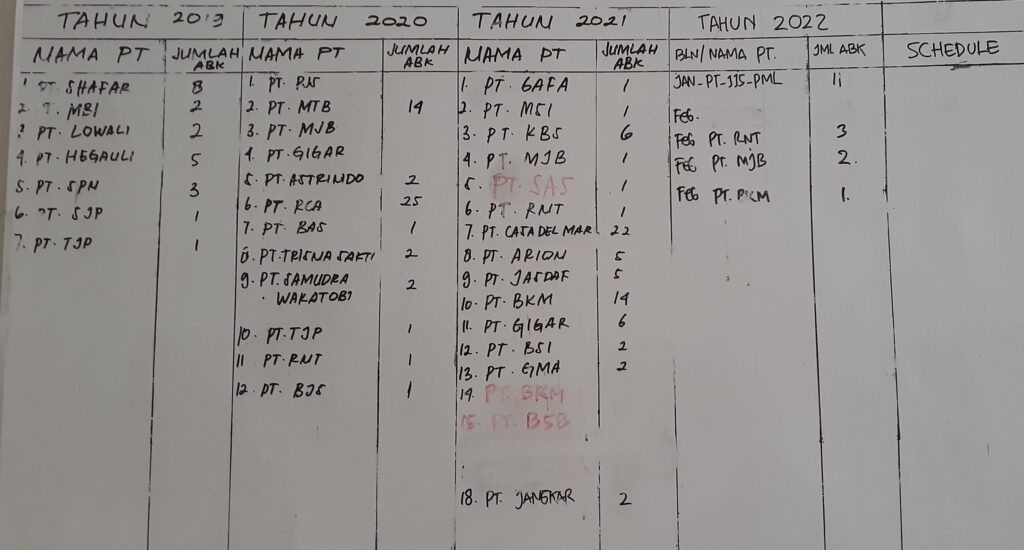 TAHUN 2019
NAMA PT JUMLAH ABK
1. PT. SHAFAR 8
2. PT. MSI 2
3. PT. LOWALI 2
4. PT. HEGAULI 5
5. PT. SPN 3
6. PT. SJP 1
7. PT. TJP 1
TAHUN 2020
NAMA PT JUMLAH ABK
1. PT.
2. PT. MTB 14
3. PT. MJB
4. PT. GIGAR
5. PT. ASTRINDO 2
6. PT. RCA 25
7. PT. BAS 1
8. PT. TRISNA SAKTI 2
9. PT. SAMUDRA 2
WAKATOBI
10. PT. TJP 1
11. PT. RNT 1
12. PT. BJS 1
TAHUN 2021
NAMA PT JUMLAH ABK
1. PT. GAFA 1
2. PT. MSI 1
3. PT. KBS 6
4. PT. MJB 1
5. PT. SAS 1
6. PT. RNT 1
7. PT. CASA DEL MAR 22
8. PT. ARION 5
9. PT. JASDAF 5
10. PT. BKM 14
11. PT. GIGAR 6
12. PT. BSI 2
13. PT. GMA 2
14. PT. BKM
15. PT. BSB
18. PT. JANGKAR 2
TAHUN 2022
BLN/NAMA PT. JML ABK
JAN-PT-JJS-PML 11
FEB.
FEB PT. RNT 3
FEB PT. MJB 2.
FEB PT. 1.
SCHEDULE